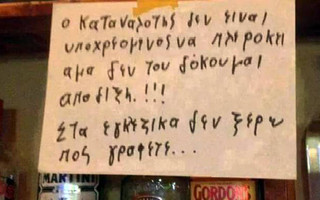 ο καταναλοτης δεν είναι
υποχρεομινος να πλιροκι
αμα δεν του δόκουμαι
αποδιξη.!!!
Στα εγκεζικα δεν ξέρω
πος γραφετε...
MARTINI
GORDON